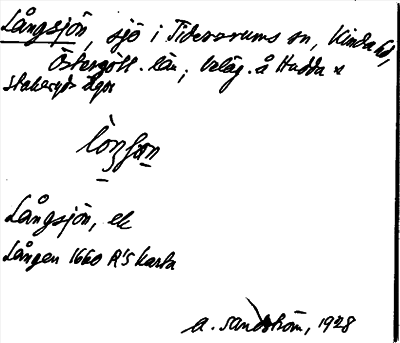 Långsjön, sjö i Tidersrums sn, Kinda hd,
Östergötl. län; beläg. å Hudda x
stakeryds ägor
Långsjön, ek
Lången 1660 R's karta
A. Sandström, 1928